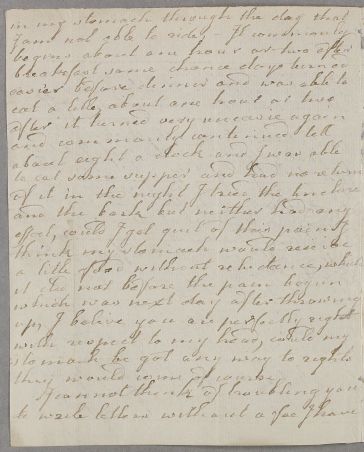 in my stomach through the day that
I am not able to ride - It commonly
begins about one hour or two after
breakfast some chance days turned
easier before dinner and was able to
eat a little, about one hour or two
after it turned very uneasie again
and commonly continued till
about eight a clock and I was able
to eat some supper and had no return
of it in the night I tried the tincture
and the bark but neither had any
effect, could I get quit of this pain I
think my stomach would receive
a little food without reluctance, which
it did not before the pain begun
which was next day after throwing
up, I belive you are perfectly right
with respect to my head, could my
stomach be got any way to rights
they would come of course
I cannot think of troubling you
to write letters without a fee I have